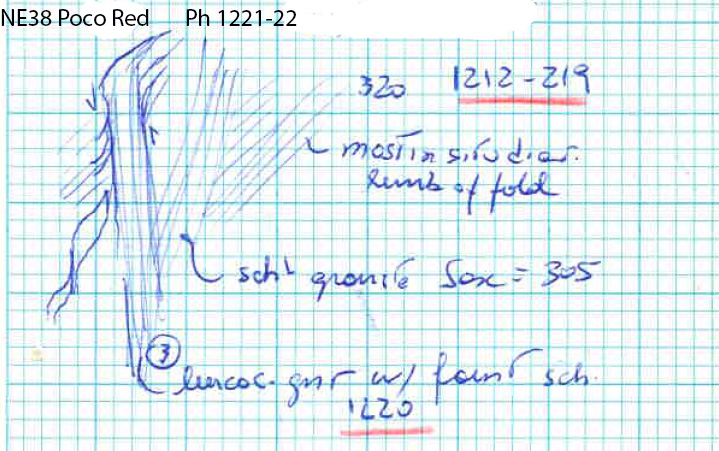 NE38 Poco Red Ph 1221-22
320 1212-219
most in situ diat.
limb of fold
schL granite Sox = 305
3
leucoc. gnt w/ faint sch.
1220